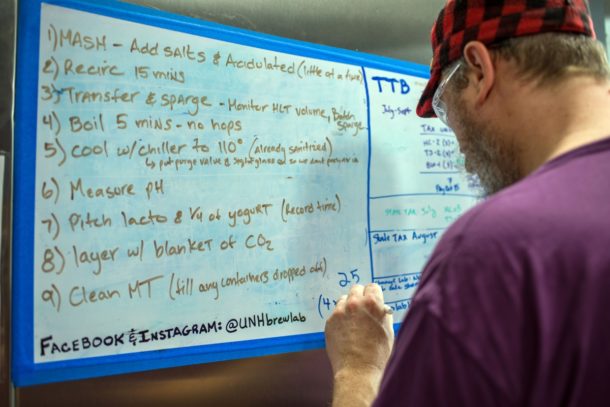 1) MASH - Add SALTS & Acidulated (little at a time)
2) Recirc 15 mins
3) Transfer & sparge - Monitor HLT volume, Batch sparge
4) Boil 5 mins - no hops
5) Cool w/ chiller to 110° (already sanitized)
↳ put purge valve & sightglass on so we dont
6) Measure pH
7) Pitch lacto & 1/4 of yogurt (Record time)
8) layer w/ blanket of CO2
9) Clean MT (fill any containers dropped off)
FACEBOOK & INSTAGRAM: @UNHbrewlab
25
(4
TTB
July-Sept
STATE TAX July
State TAX August